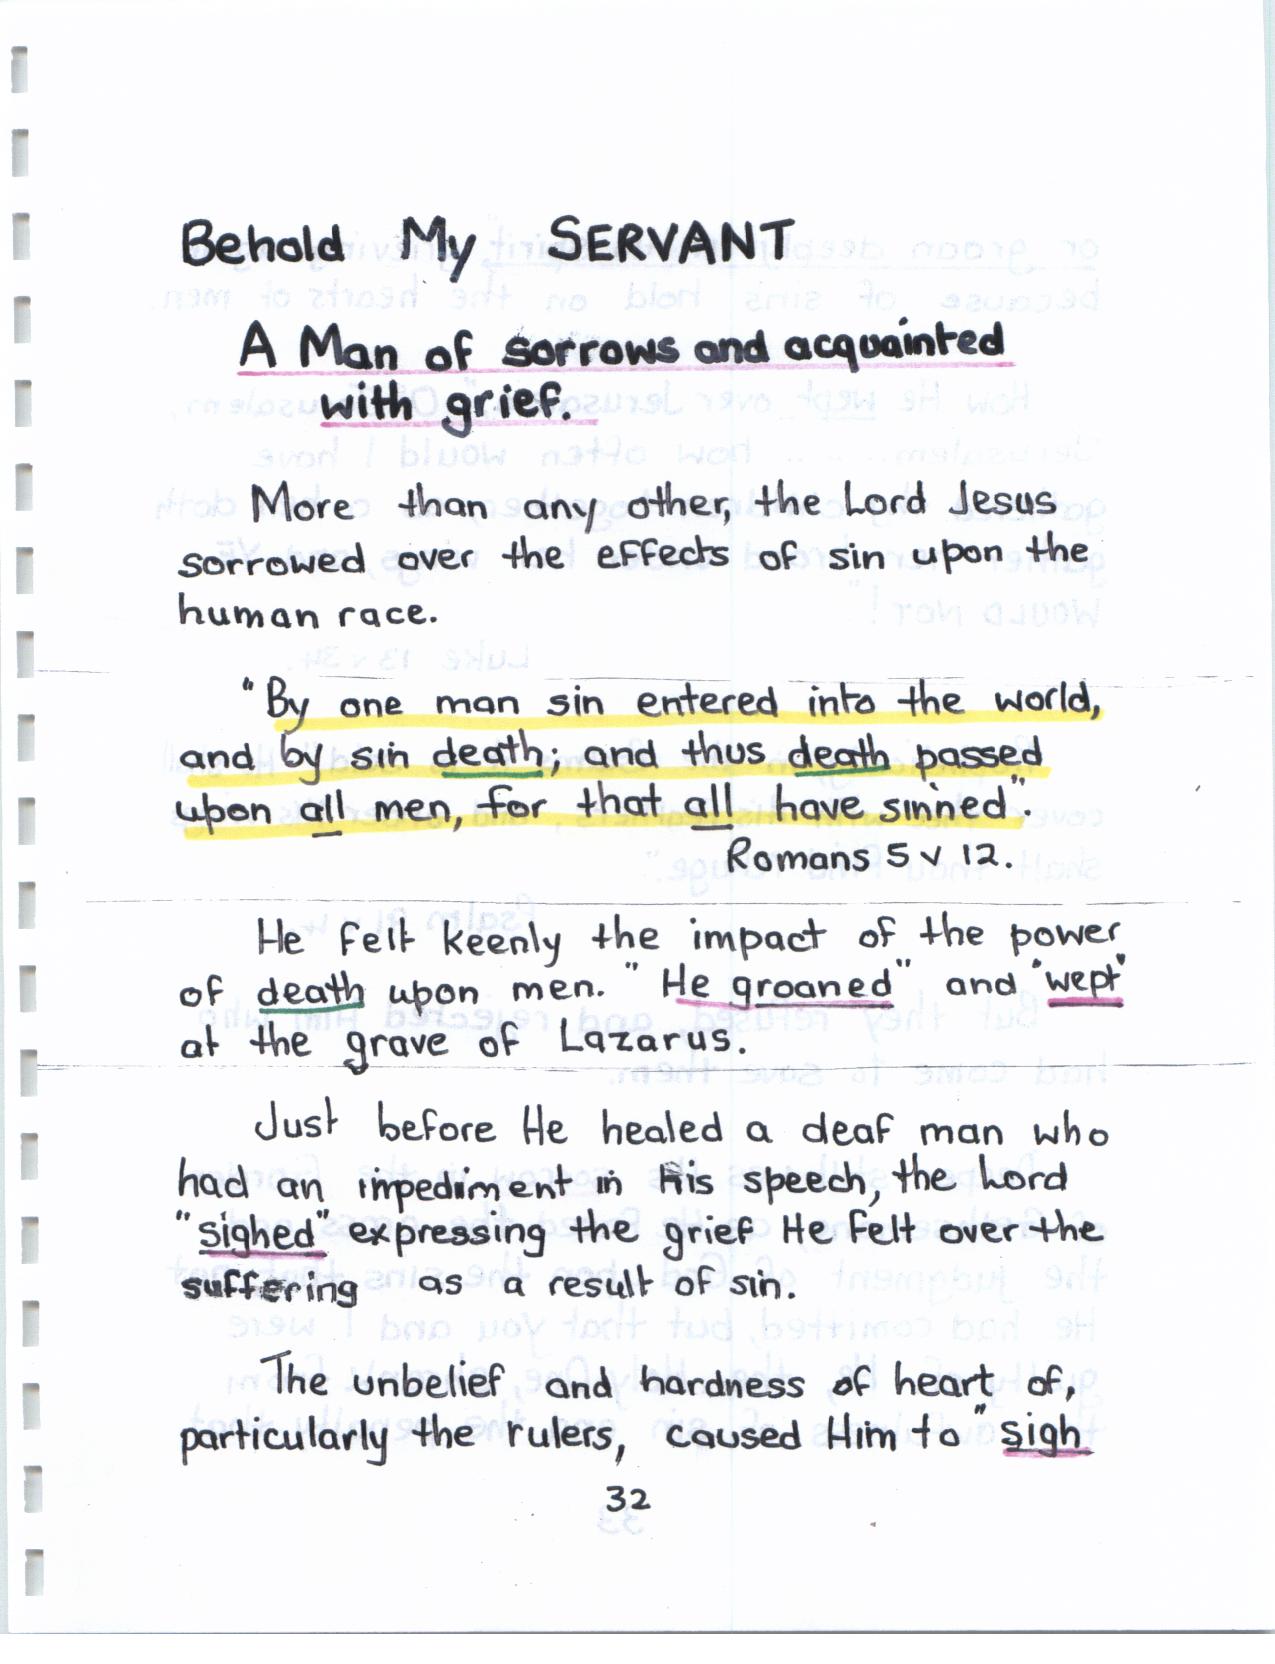 Behold My SERVANT
A Man of sorrows and acquainted
with grief.
More than any other, the Lord Jesus
sorrowed over the effects of sin upon the
human race.
"By one man sin entered into the world,
and by sin death; and thus death passed
upon all men, for that all have sinned".
Romans 5 v 12.
He felt keenly the impact of the power
of death upon men. "He groaned" and "wept"
at the grave of Lazarus.
Just before He healed a deaf man who
had an impediment in his speech, the Lord
"sighed" expressing the grief He felt over the
suffering as a result of sin.
The unbelief and hardness of heart of,
particularly the rulers, caused Him to "sigh
32